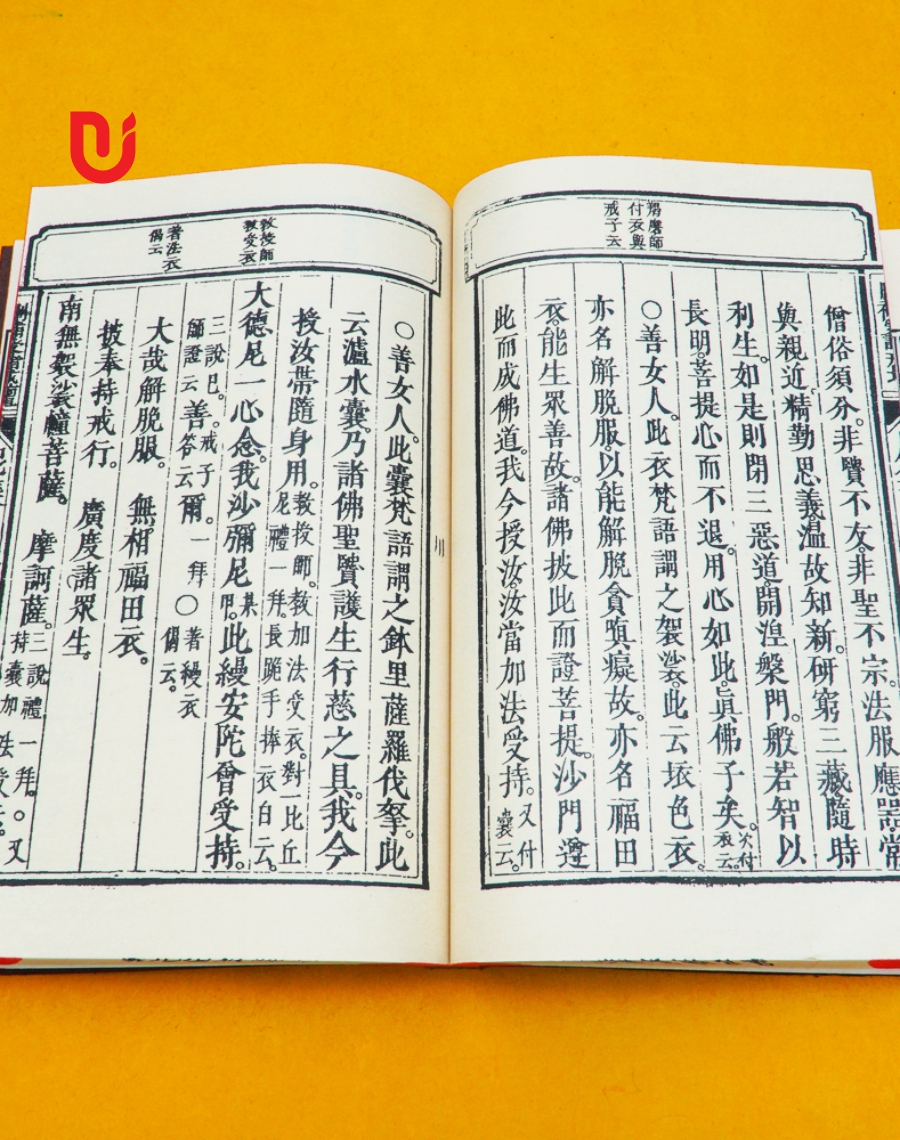 羯磨師
付衣與
戒子云
僧俗須分。非賢不友。非聖不宗。法服應器。常
與親近。精勤思義。溫故知新。研窮三藏。隨時
利生。如是則閉三惡道。開湼槃門。般若智以
長明。菩提心而不退。用心如此。眞佛子矣。次付衣云。
〇善女人。此衣梵語謂之袈裟。此云壞色衣。
亦名解脫服。以能解脫貪嗔癡故。亦名福田
衣。能生眾善故。諸佛披此而證菩提。沙門遵
此而成佛道。我今授汝。汝當加法受持。又付囊云。
教授師
教受衣
著法衣
偈云
〇善女人。此囊梵語謂之鉢里薩羅伐拏。此
云濾水囊。乃諸佛聖賢護生行慈之具。我今
授汝帶隨身用。教授師。教加法受衣。對一比丘尼禮一拜。長跪手捧衣白云。
大德尼一心念。我沙彌尼某甲。此縵安陀會受持。
三說已。師證云善。戒子答云爾。一拜〇著縵衣偈云。
大哉解脫服。 無相福田衣。
披奉持戒行。 廣度諸眾生。
南無袈裟幢菩薩。 摩訶薩。三說禮一拜。〇又持囊加法受